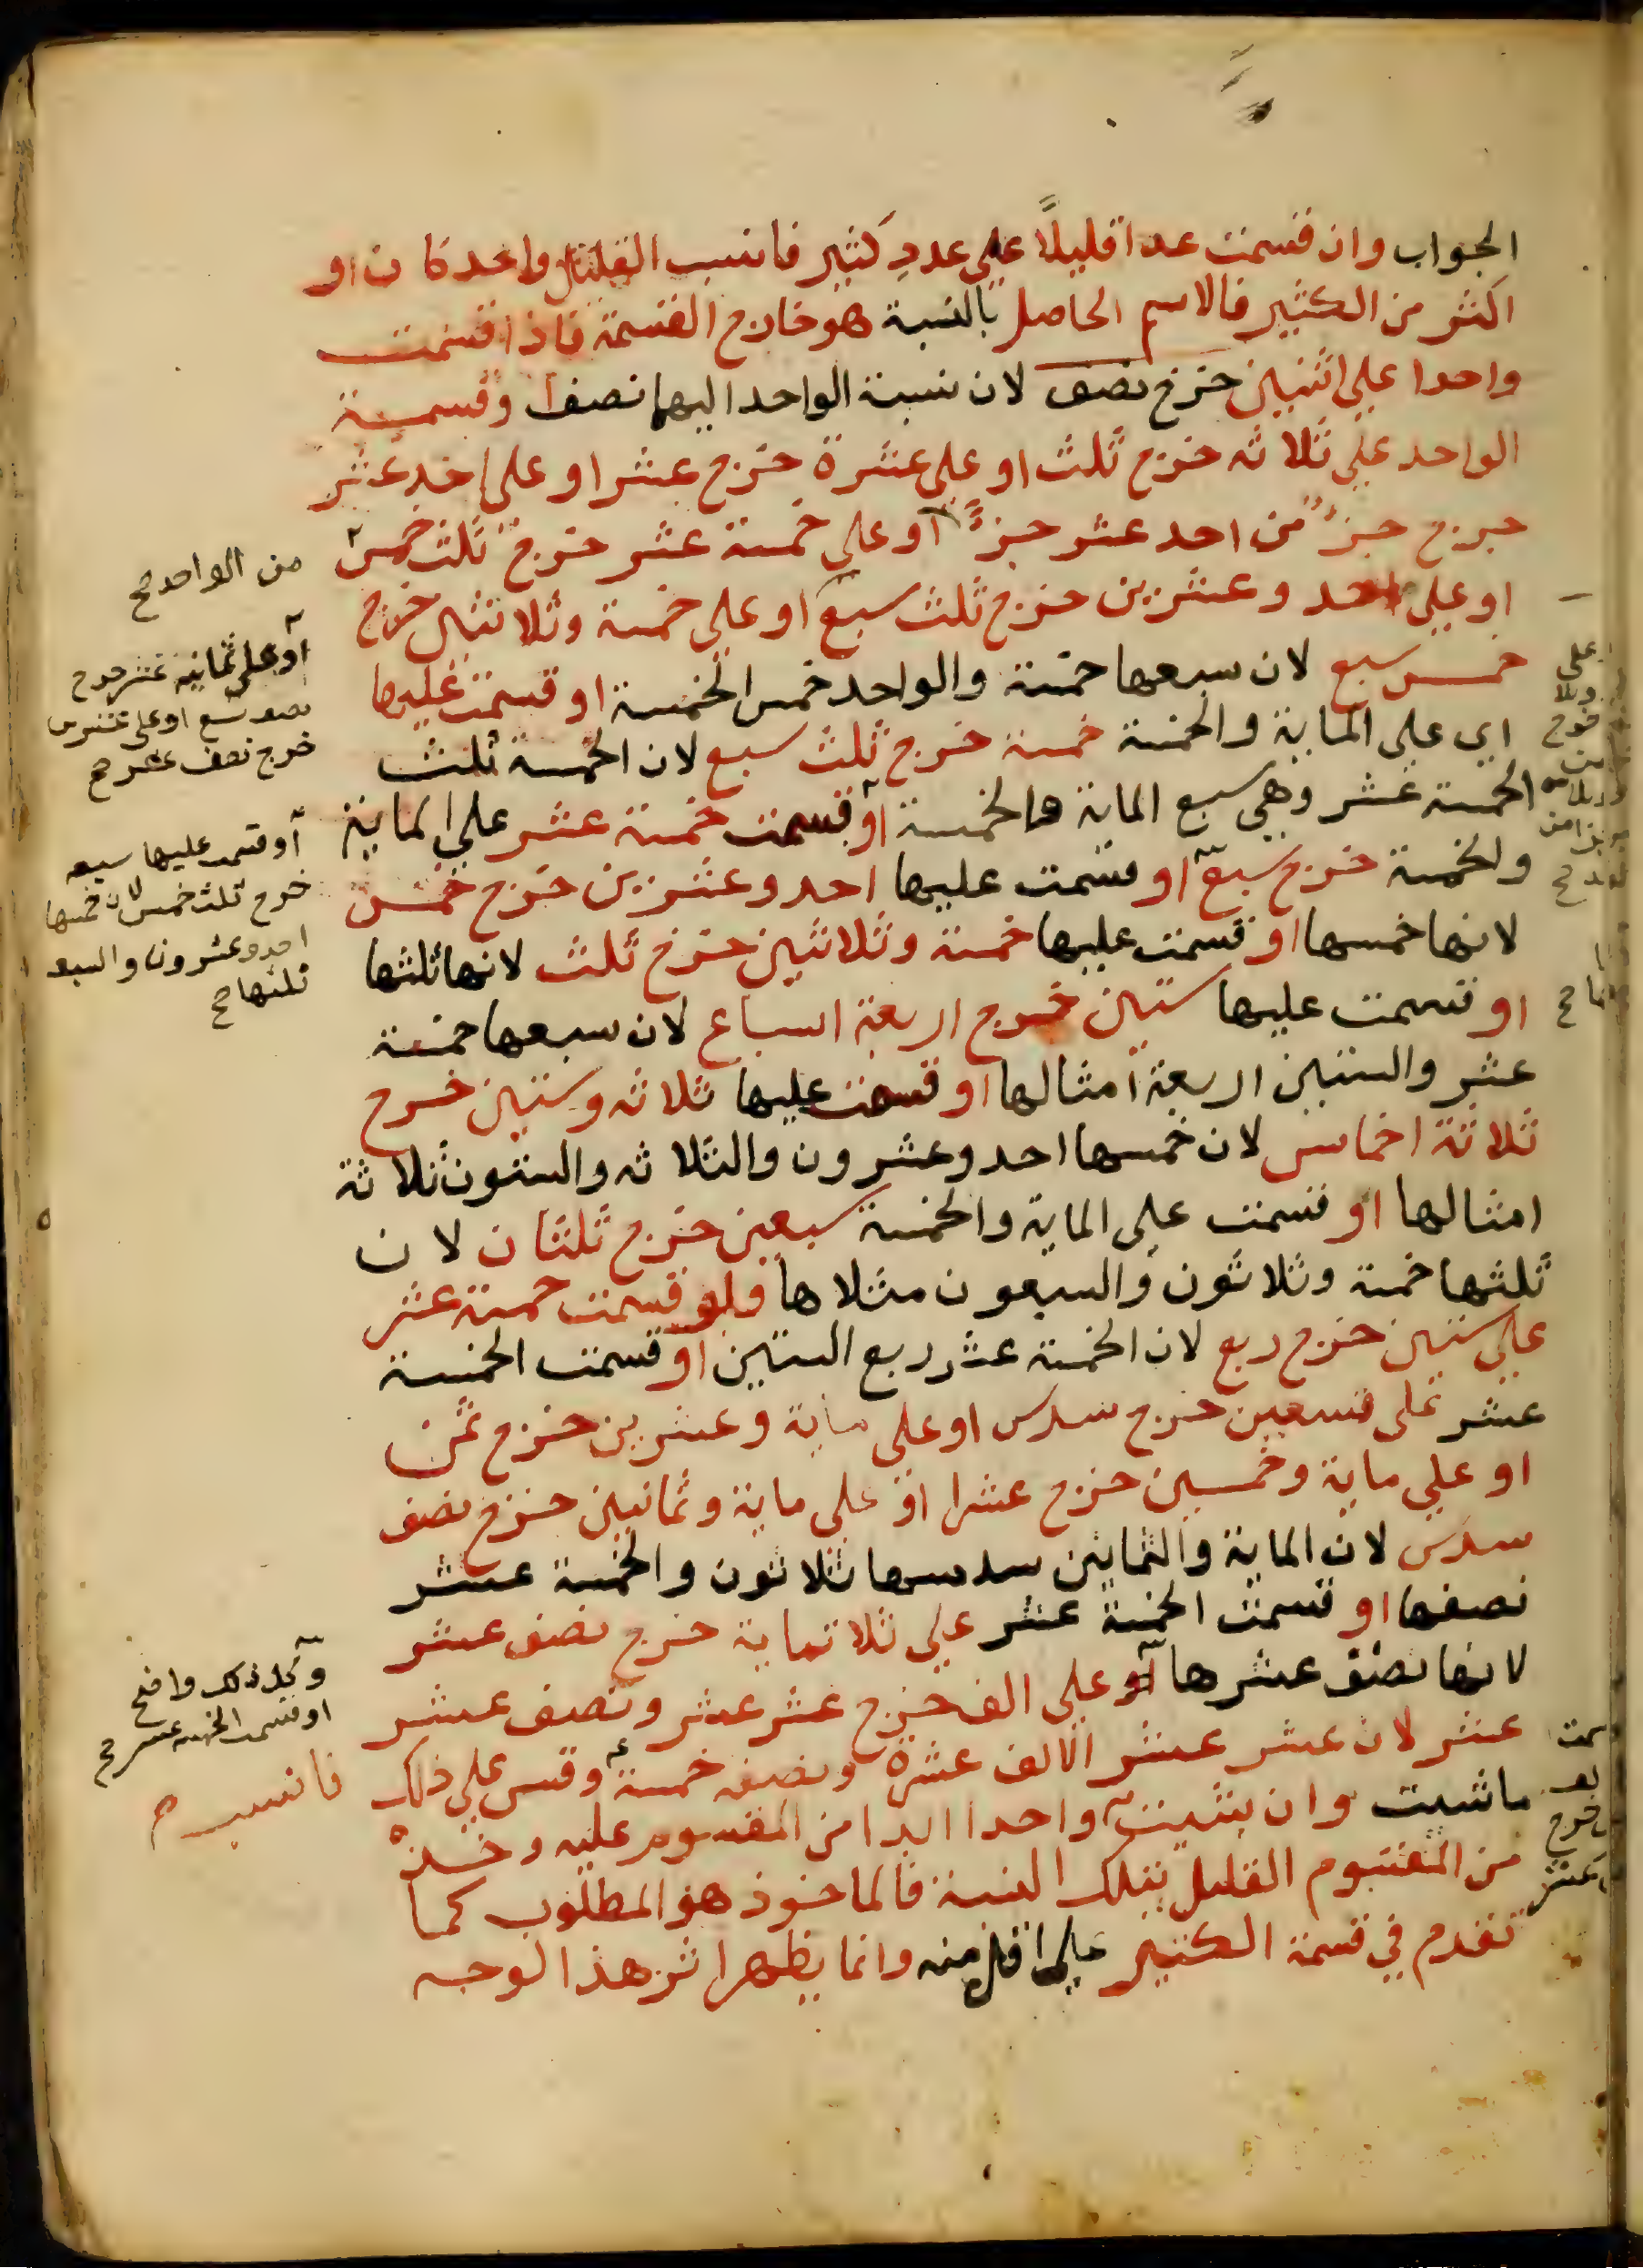 الجواب وان قسمت عددا قليلاً على عددٍ كثير فانسب القليل واحد كان او
اكثر من الكثير فالاسم الحاصل بالنسبة هو خارج القسمة فاذا قسمت
واحدا على اثنين خرج نصف لان نسبة الواحد اليهما نصف وقسمة
الواحد على ثلاثه خرج ثلث او على عشرة خرج عشر او على احد عشر
خرج جزءٌ من احد عشر جزءً او على خمسة عشر خرج ثلث خمس
او على احد وعشرين خرج ثلث سبع او على خمسة وثلاثين خرج
خمس سبع لان سبعها خمسة والواحد خمس الخمسة او قسمت عليها
اي على الماية والخمسة خمسة خرج ثلث سبع لان الخمسة ثلث
الخمسة عشر وهي سبع الماية والخمسة او قسمت خمسة عشر على الماية
والخمسة خرج سبع او قسمت عليها احد وعشرين خرج خمس
لانها خمسها او قسمت عليها خمسة وثلاثين خرج ثلث لانها ثلثها
او قسمت عليها ستين خرج اربعة اسباع لان سبعها خمسة
عشر والستين اربعة امثالها او قسمت عليها ثلاثه وستين خرج
ثلاثة اخماس لان خمسها احد وعشرون والثلاثه والستون ثلاثة
امثالها او قسمت على الماية والخمسة سبعين خرج ثلثان لان
ثلثها خمسة وثلاثون والسبعون مثلاها ولو قسمت خمسة عشر
على ستين خرج ربع لان الخمسة عشر ربع الستين او قسمت الخمسة
عشر على تسعين خرج سدس او على ماية وعشرين خرج ثمن
او على ماية وخمسين خرج عشرا او على ماية وثمانين خرج نصف
سدس لان الماية والثمانين سدسها ثلاثون والخمسة عشر
نصفها او قسمت الخمسة عشر على ثلاثماية خرج نصف عشر
لانها نصف عشرها او على الف خرج عشر عشر ونصف عشر
عشر لان عشر عشر الالف عشرة ونصفه خمسة وقس على ذلك
ماشيت وان شيت واحدا ابدا من المقسوم عليه وخذ
من المقسوم القليل بتلك النسبة فالماخوذ هو المطلوب كما
تقدم في قسمة الكثير على اقل منه وانما يظهر اثر هذا الوجه
من الواحد صح
او على ثمانية عشر خرج
نصف تسع او على عشرين
خرج نصف عشر صح
او قسمت عليها سبعه
خرج ثلث خمس لان خمسها
احد وعشرون والسبعه
ثلثها صح
وكل ذلك واضح
او قسمت الخمسة عشر صح
فانسب صح